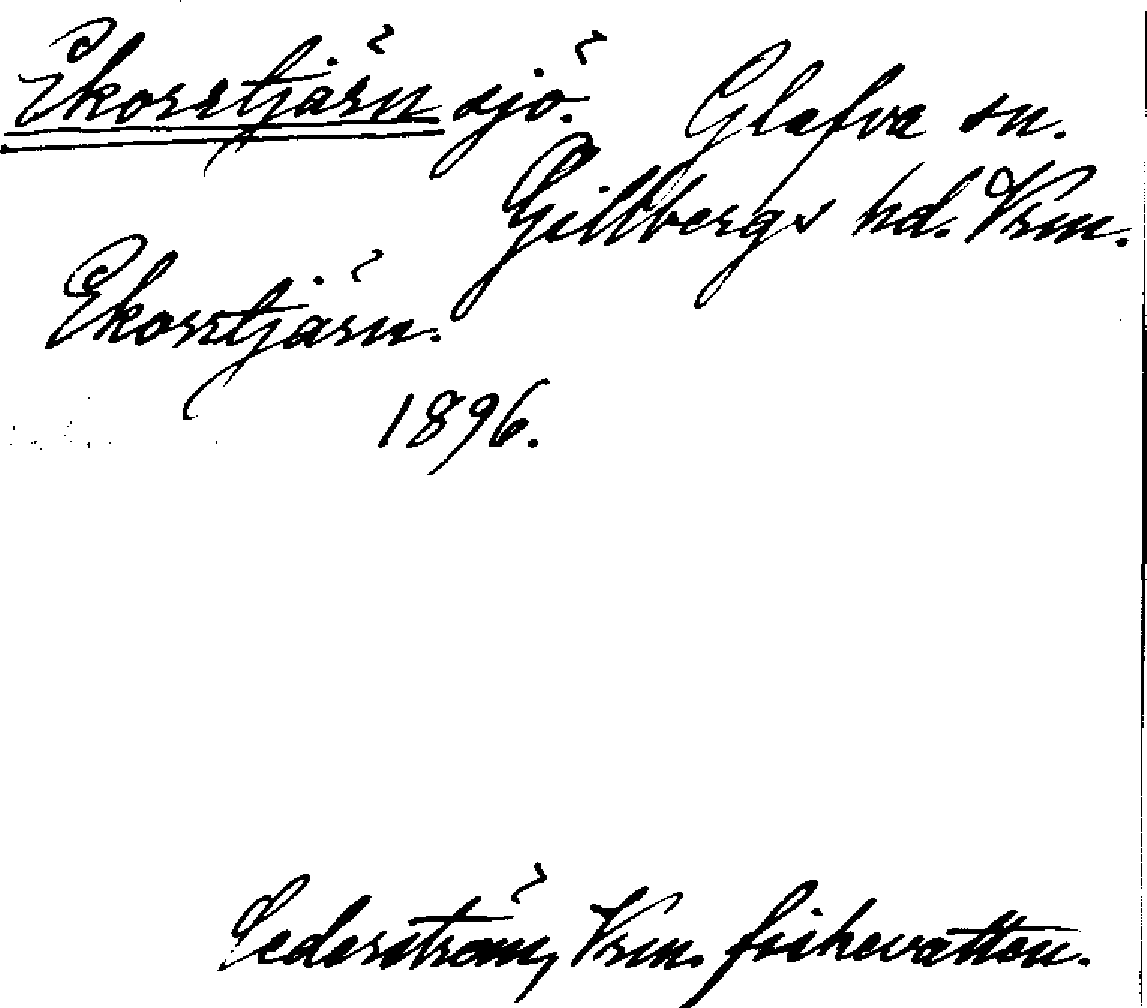 Ekorrtjärn sjö. Glafva sn.
Gillbergs hd. Vrm.
Ekorrtjärn.
1896.
Cederström, Vrm. fiskevatten.